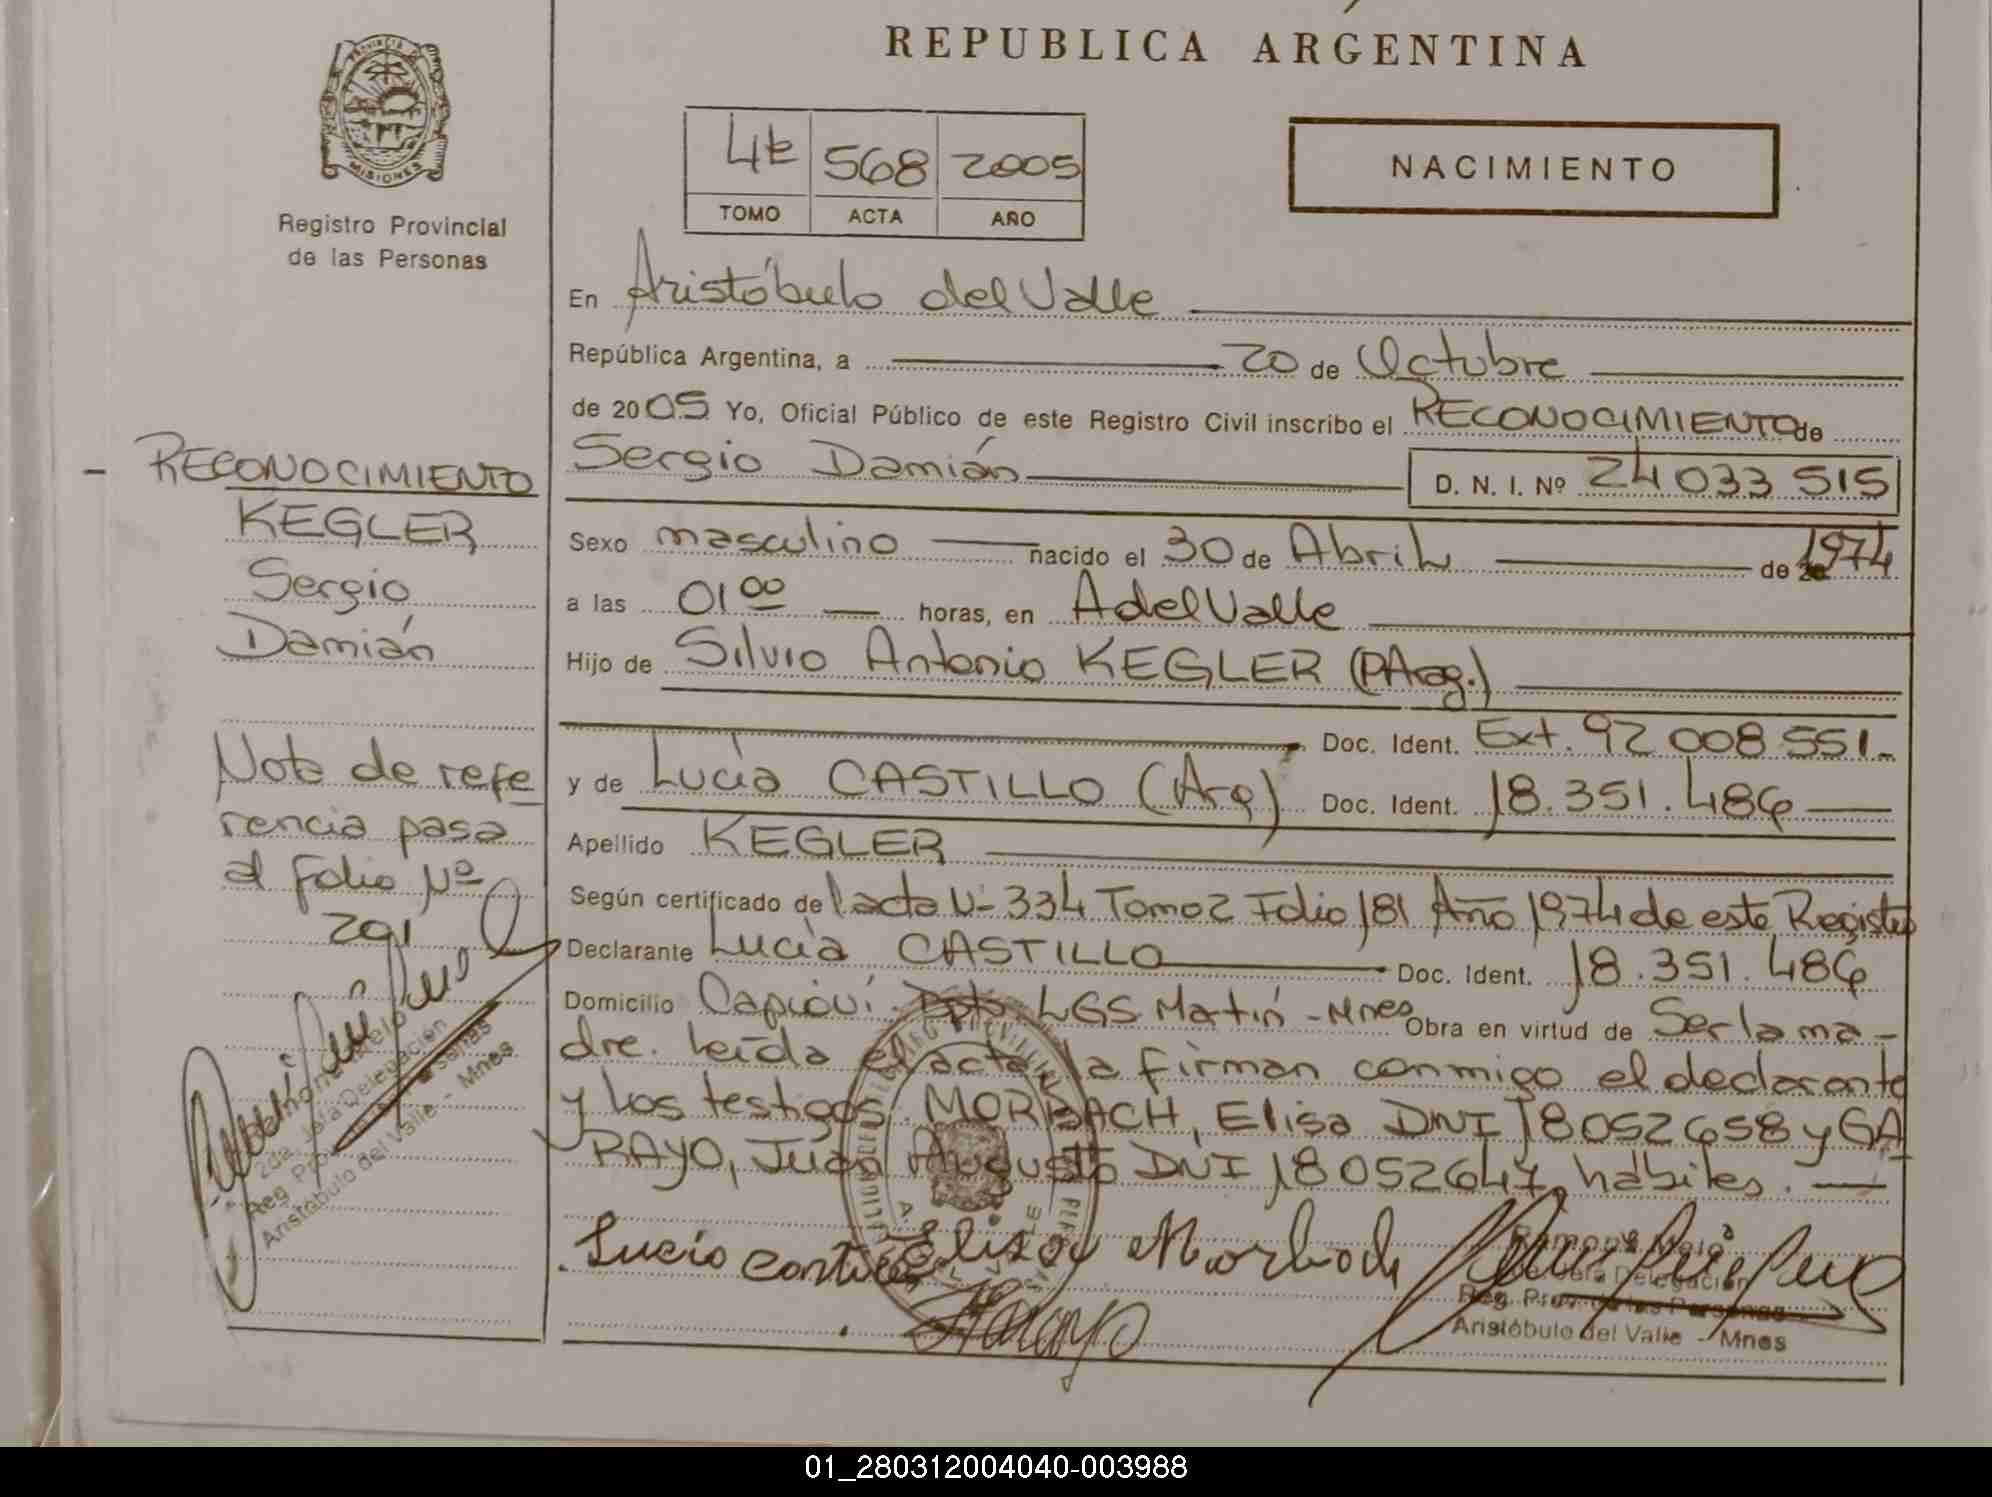 REPUBLICA ARGENTINA
PROVINCIA DE
MISIONES
Registro Provincial
de las Personas
568 2005
TOMO ACTA AÑO
NACIMIENTO
En Aristóbulo del Valle
República Argentina, a 20 de Octubre
de 2005 Yo, Oficial Público de este Registro Civil inscribo el RECONOCIMIENTO de
Sergio Damián D. N. I. Nº 24 033 515
Sexo masculino nacido el 30 de Abril de 1974
a las 01 00 horas, en A del Valle
Hijo de Silvio Antonio KEGLER (PArag.)
Doc. Ident. Ext. 92 008 551.-
y de Lucía CASTILLO (Arg) Doc. Ident. 18.351.486
Apellido KEGLER
Según certificado de l'acta Nº 334 Tomo 2 Folio 181 Año 1974 de este Registro
Declarante Lucía CASTILLO Doc. Ident. 18.351.486
Domicilio Capioví. Dpto LGS Martín - Mnes Obra en virtud de Ser la ma-
dre. Leída el acta, la firman conmigo el declarante
y los testigos MORBACH, Elisa DNI 18052658 y GA
RAYO, Juan Augusto DNI 18052647 hábiles.
Lucia Elisa Morbach
Ramona Melo
Delegación
Reg. Prov. de las Personas
Aristóbulo del Valle - Mnes
- RECONOCIMIENTO
KEGLER
Sergio
Damián
Nota de refe
rencia pasa
al folio Nº
291
2da. Jefa Delegación
Reg. Prov. Personas
Aristóbulo del Valle - Mnes
01_280312004040-003988